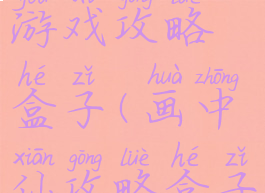 yóu xì gōng lüè
游戏攻略
hé zǐ huà zhōng
盒子(画中
xiān gōng lüè hé zǐ
仙攻略盒子